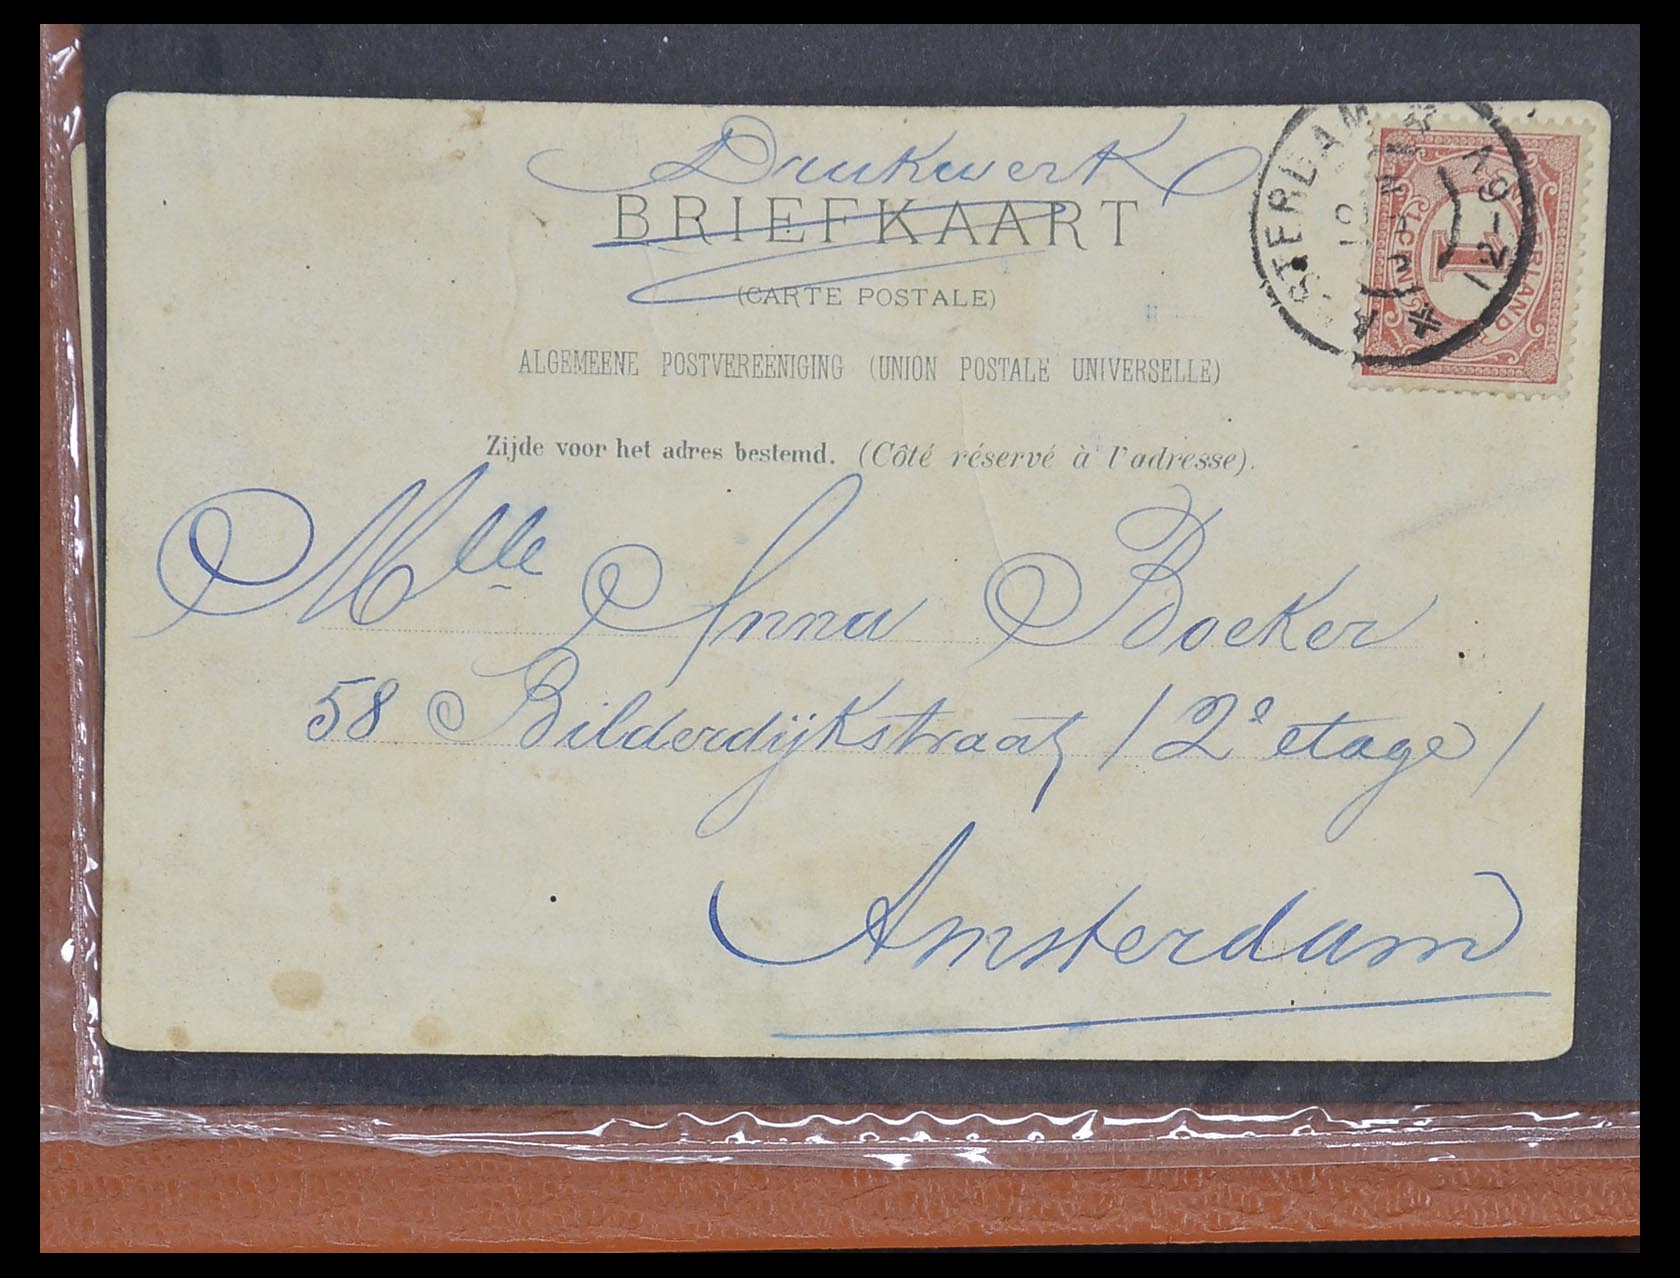 Drukwerk
BRIEFKAART
(CARTE POSTALE)
ALGEMEENE POSTVEREENIGING (UNION POSTALE UNIVERSELLE)
Zijde voor het adres bestemd. (Côté réservé à l'adresse).
Mlle Anna Boeker
58 Bilderdijkstraat / 2e etage /
Amsterdam
AMSTERDAM
1